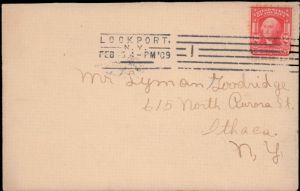 LOCKPORT,
N.Y.
FEB 5 4-PM '09
1
Mr Lyman Goodridge
615 North Aurora St.
Ithaca
N. Y.